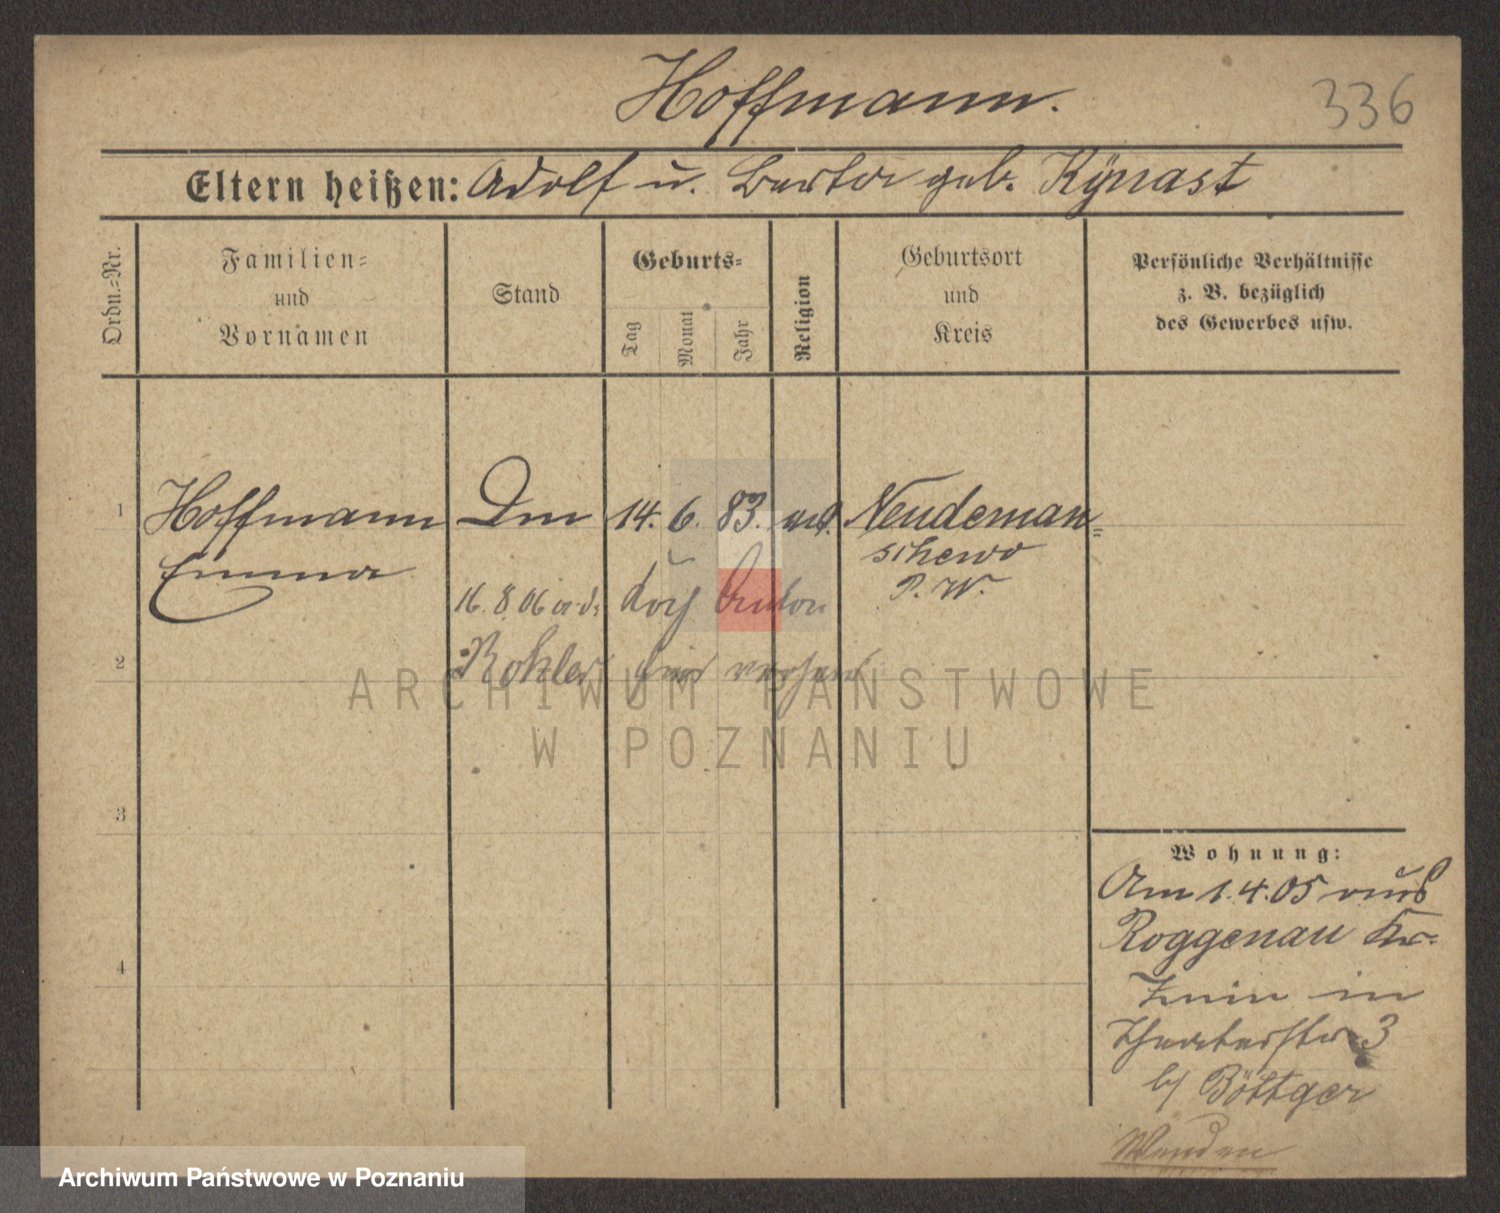 Hoffmann.
336
Eltern heißen: Adolf u. Berta geb. Kÿnast
Ordn.-Nr.
Familien-
und
Vornamen
Stand
Geburts-
Tag
Monat
Jahr
Religion
Geburtsort
und
Kreis
Persönliche Verhältnisse
z. B. bezüglich
des Gewerbes usw.
1
Hoffmann
Emma
14. 6. 83.
Neudeman=
schewo
P. W.
16. 8 06
2
3
4
Wohnung:
Am 1.4.05 aus
Roggenau Kr.
Znin in
Theaterstr 3
b/ Böttger
ARCHIWUM PAŃSTWOWE
W POZNANIU
Archiwum Państwowe w Poznaniu